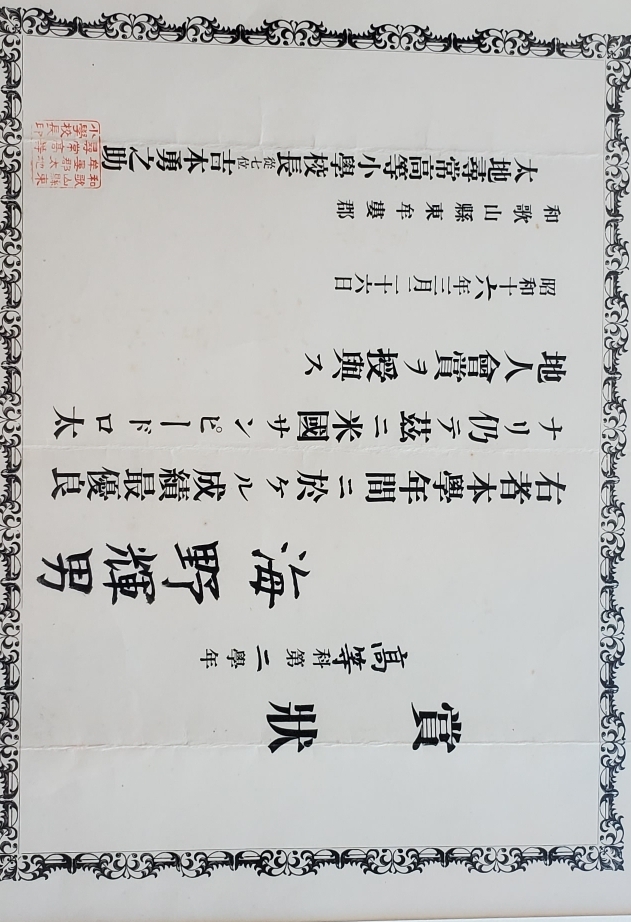 賞狀
高等科第二學年
海野輝男
右者本學年間ニ於ケル成績最優良
ナリ仍テ茲ニ米國サンピードロ太
地人會賞ヲ授與ス
昭和十六年三月二十六日
和歌山縣東牟婁郡
太地尋常高等小學校長從七位吉本勇之助
和歌山縣東
牟婁郡太地
尋常高等
小學校長印